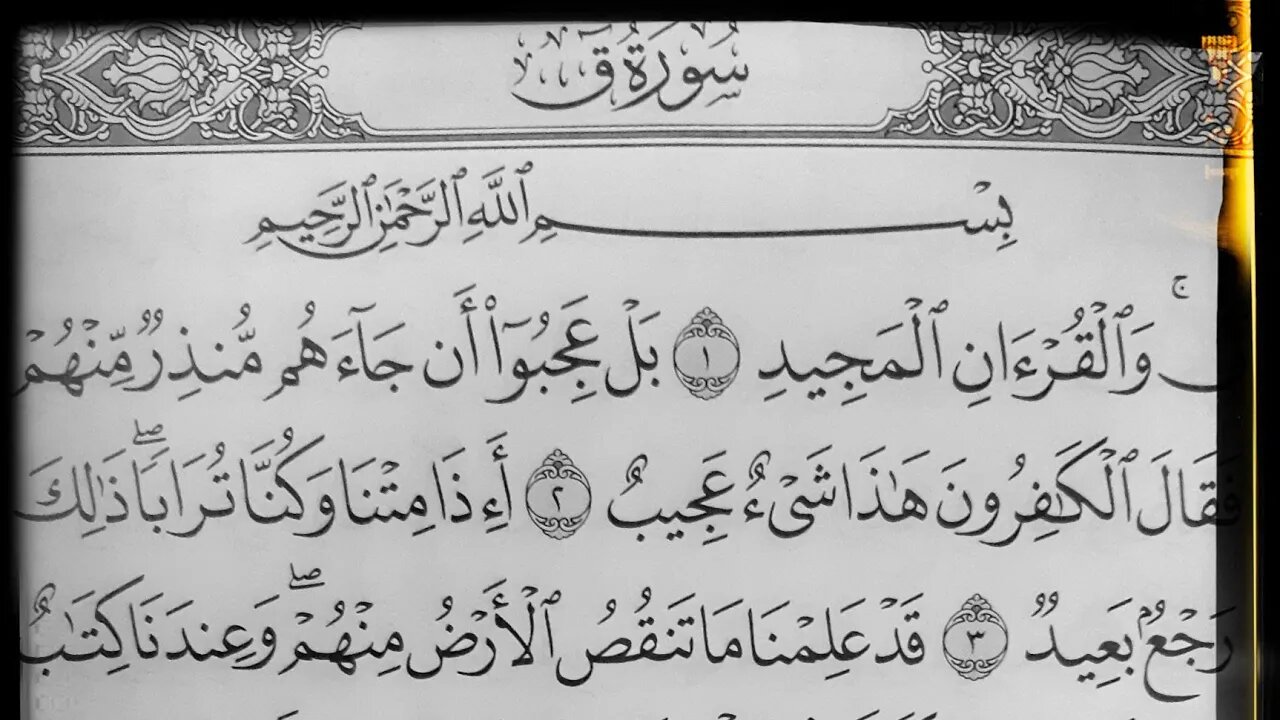 سُورَةُ قٓ
بِسْمِ ٱللَّهِ ٱلرَّحْمَٰنِ ٱلرَّحِيمِ
ۚ وَٱلْقُرْءَانِ ٱلْمَجِيدِ ١ بَلْ عَجِبُوٓا۟ أَن جَآءَهُم مُّنذِرٌ مِّنْهُمْ
فَقَالَ ٱلْكَٰفِرُونَ هَٰذَا شَىْءٌ عَجِيبٌ ٢ أَءِذَا مِتْنَا وَكُنَّا تُرَابًا ۖ ذَٰلِكَ
رَجْعٌۢ بَعِيدٌ ٣ قَدْ عَلِمْنَا مَا تَنقُصُ ٱلْأَرْضُ مِنْهُمْ ۖ وَعِندَنَا كِتَٰبٌ